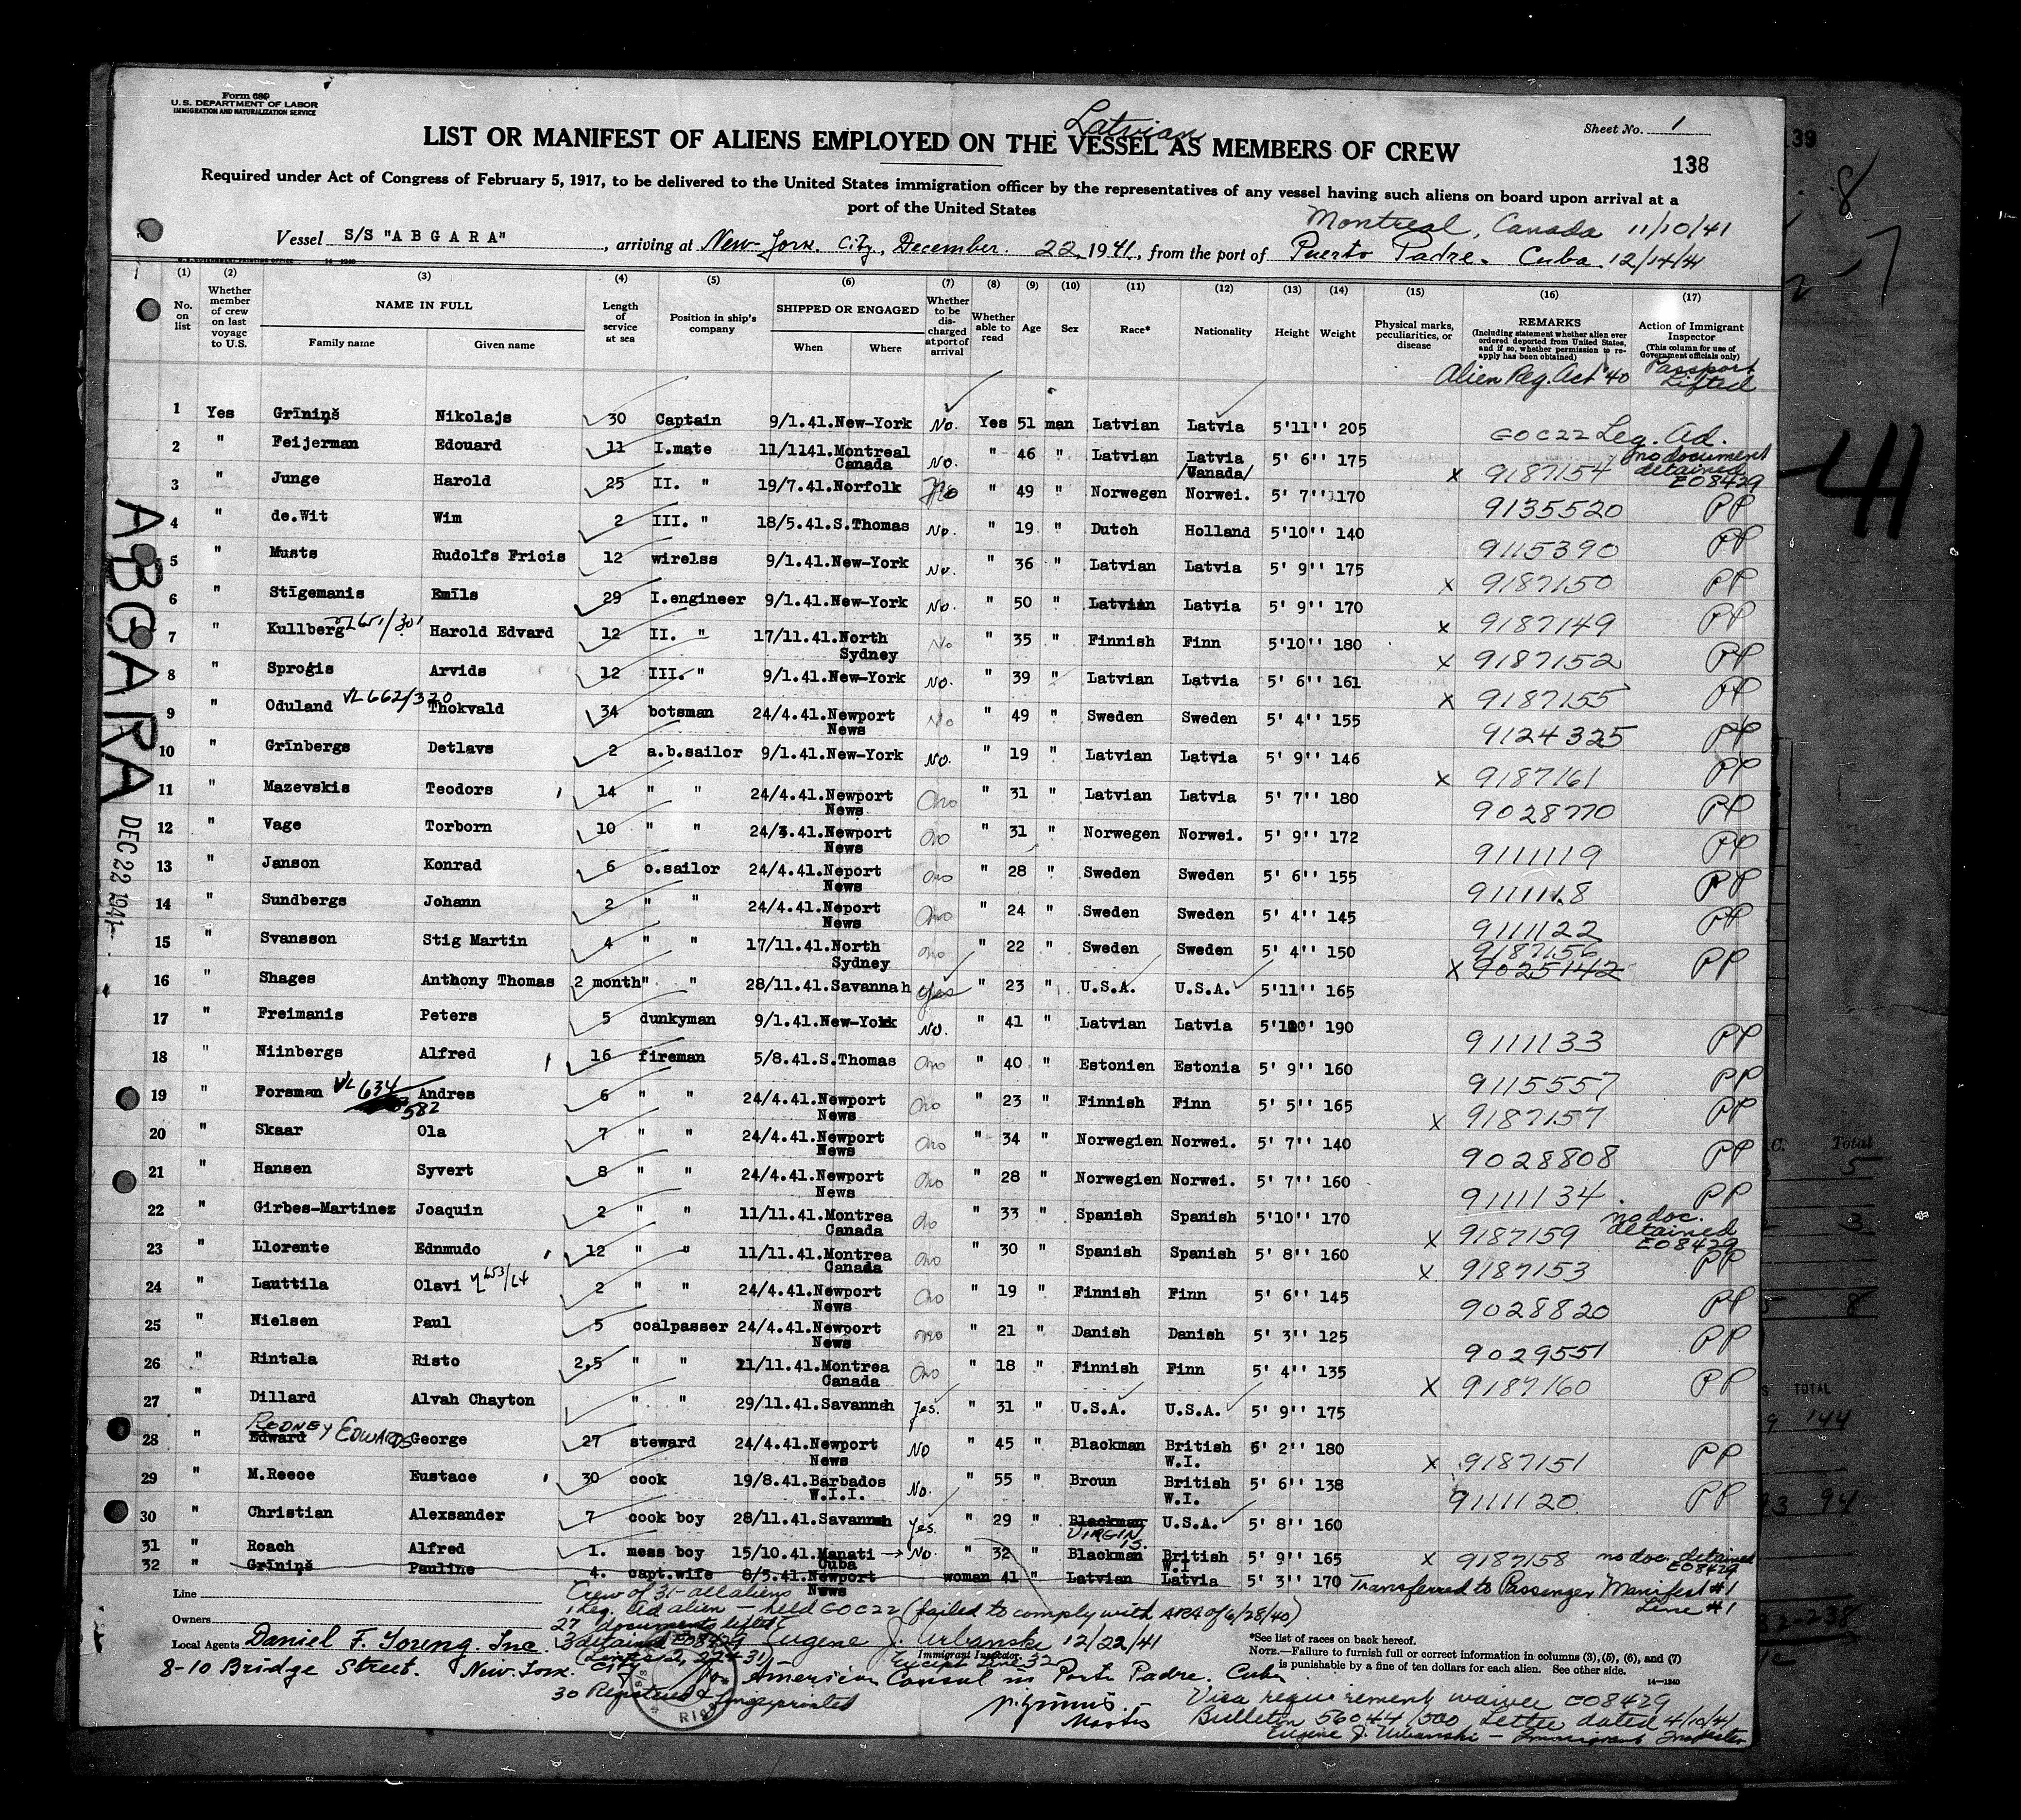 Form 689
U.S. DEPARTMENT OF LABOR
IMMIGRATION AND NATURALIZATION SERVICE
Latvian
Sheet No. 1
LIST OR MANIFEST OF ALIENS EMPLOYED ON THE VESSEL AS MEMBERS OF CREW
138
Required under Act of Congress of February 5, 1917, to be delivered to the United States immigration officer by the representatives of any vessel having such aliens on board upon arrival at a
port of the United States
Montreal, Canada 11/10/41
Vessel S/S "ABGARA", arriving at New York City, December 22, 1941, from the port of Puerto Padre. Cuba 12/14/41
(1) (2) (3) (4) (5) (6) (7) (8) (9) (10) (11) (12) (13) (14) (15) (16) (17)
No. on list Whether member of crew on last voyage to U.S. NAME IN FULL Family name Given name Length of service at sea Position in ship's company SHIPPED OR ENGAGED When Where Whether to be discharged at port of arrival Whether able to read Age Sex Race* Nationality Height Weight Physical marks, peculiarities, or disease REMARKS (Including statement whether alien ever ordered deported from United States, and if so, whether permission to reapply has been obtained) Action of Immigrant Inspector (This column for use of Government officials only)
Alien Reg. Act '40 Passport Lifted
1 Yes Grīniņš Nikolajs 30 Captain 9/1.41. New-York No. Yes 51 man Latvian Latvia 5'11'' 205 GOC22 Leg. Ad.
2 " Feijerman Edouard 11 I.mate 11/1141. Montreal Canada No. " 46 " Latvian Latvia /Canada/ 5' 6'' 175 x 9187154 no document detained EO8429
3 " Junge Harold 25 II. " 19/7.41. Norfolk No " 49 " Norwegen Norwei. 5' 7'' 170 9135520 PP
4 " de.Wit Wim 2 III. " 18/5.41. S.Thomas No. " 19 " Dutch Holland 5'10'' 140 9115390 PP
5 " Musts Rudolfs Fricis 12 wirelss 9/1.41. New-York No. " 36 " Latvian Latvia 5' 9'' 175 x 9187150 PP
6 " Stīgemanis Emīls 29 I.engineer 9/1.41. New-York No. " 50 " Latvian Latvia 5' 9'' 170 x 9187149 PP
7 " Kullberg VL651/301 Harold Edvard 12 II. " 17/11.41. North Sydney No " 35 " Finnish Finn 5'10'' 180 x 9187152 PP
8 " Sproģis Arvids 12 III. " 9/1.41. New-York No. " 39 " Latvian Latvia 5' 6'' 161 x 9187155 PP
9 " Oduland VL662/320 Thokvald 34 botsman 24/4.41. Newport News No " 49 " Sweden Sweden 5' 4'' 155 9124325 PP
10 " Grīnbergs Detlavs 2 a.b.sailor 9/1.41. New-York No. " 19 " Latvian Latvia 5' 9'' 146 x 9187161 PP
11 " Mazevskis Teodors 14 " " 24/4.41. Newport News No " 31 " Latvian Latvia 5' 7'' 180 9028770 PP
12 " Vage Torborn 10 " " 24/4.41. Newport News No " 31 " Norwegen Norwei. 5' 9'' 172 9111119 PP
13 " Janson Konrad 6 o.sailor 24/4.41. Neport News No " 28 " Sweden Sweden 5' 6'' 155 9111118 PP
14 " Sundbergs Johann 2 " " 24/4.41. Neport News No " 24 " Sweden Sweden 5' 4'' 145 9111122 PP
15 " Svansson Stig Martin 4 " " 17/11.41. North Sydney No " 22 " Sweden Sweden 5' 4'' 150 x 9187156 9025142 PP
16 " Shages Anthony Thomas 2 month " " 28/11.41. Savannah Yes " 23 " U.S.A. U.S.A. 5'11'' 165
17 " Freimanis Peters 5 dunkyman 9/1.41. New-York No. " 41 " Latvian Latvia 190 9111133 PP
18 " Niinbergs Alfred 16 fireman 5/8.41. S.Thomas No " 40 " Estonien Estonia 5' 9'' 160 9115557 PP
19 " Forsman VL634/582 Andres 6 " " 24/4.41. Newport News No " 23 " Finnish Finn 5' 5'' 165 x 9187157 PP
20 " Skaar Ola 7 " " 24/4.41. Newport News No " 34 " Norwegien Norwei. 5' 7'' 140 9028808 PP
21 " Hansen Syvert 8 " " 24/4.41. Newport News No " 28 " Norwegien Norwei. 5' 7'' 160 9111134 PP
22 " Girbes-Martinez Joaquin 2 " " 11/11.41. Montrea Canada No " 33 " Spanish Spanish 5'10'' 170 x 9187159 no doc. detained EO8429
23 " Llorente Ednmudo 12 " " 11/11.41. Montrea Canada No " 30 " Spanish Spanish 5' 8'' 160 x 9187153 PP
24 " Lauttila Olavi 2 " " 24/4.41. Newport News No " 19 " Finnish Finn 5' 6'' 145 9028820 PP
25 " Nielsen Paul 5 coalpasser 24/4.41. Newport News No " 21 " Danish Danish 5' 3'' 125 9029551 PP
26 " Rintala Risto 2,5 " " 11/11.41. Montrea Canada No " 18 " Finnish Finn 5' 4'' 135 x 9187160 PP
27 " Dillard Alvah Chayton " " 29/11.41. Savannah Yes. " 31 " U.S.A. U.S.A. 5' 9'' 175
28 " Edward RODNEY EDWARDS George 27 steward 24/4.41. Newport News No " 45 " Blackman British W.I. 6' 2'' 180 x 9187151 PP
29 " M.Reece Eustace 30 cook 19/8.41. Barbados W.I.I. No. " 55 " Broun British W.I. 5' 6'' 138 9111120 PP
30 " Christian Alexsander 7 cook boy 28/11.41. Savannah Yes. " 29 " Blackman VIRGIN IS. U.S.A. 5' 8'' 160
31 " Roach Alfred 1. mess boy 15/10.41. Manati Cuba No. " 32 " Blackman British W.I 5' 9'' 165 x 9187158 no doc. detained EO8429
32 " Grīniņš Pauline 4. capt.wife 8/5.41. Newport News woman 41 " Latvian Latvia 5' 3'' 170 Transferred to Passenger Manifest #1 Line #1
Line
Crew of 31 - all aliens
1 Leg. Ad alien - held GOC22 (failed to comply with ARA of 6/28/40)
Owners
27 documents lifted
Local Agents Daniel F. Young. Inc.
3 detained EO8429
Eugene J. Urbanski 12/22/41
Immigrant Inspector.
Except Line 32
8-10 Bridge Street. New York City
American Consul in Porto Padre. Cuba
30 Registered & fingerprinted
Master
*See list of races on back hereof.
NOTE.—Failure to furnish full or correct information in columns (3), (5), (6), and (7)
is punishable by a fine of ten dollars for each alien. See other side.
14—1240
Visa requirement waived EO8429
Bulletin 56044/500 Letter dated 4/10/41
Eugene J. Urbanski - Immigrant Inspector
ABGARA DEC 22 1941
39
8
7
41
C. Total
5
3
8
TOTAL
144
94